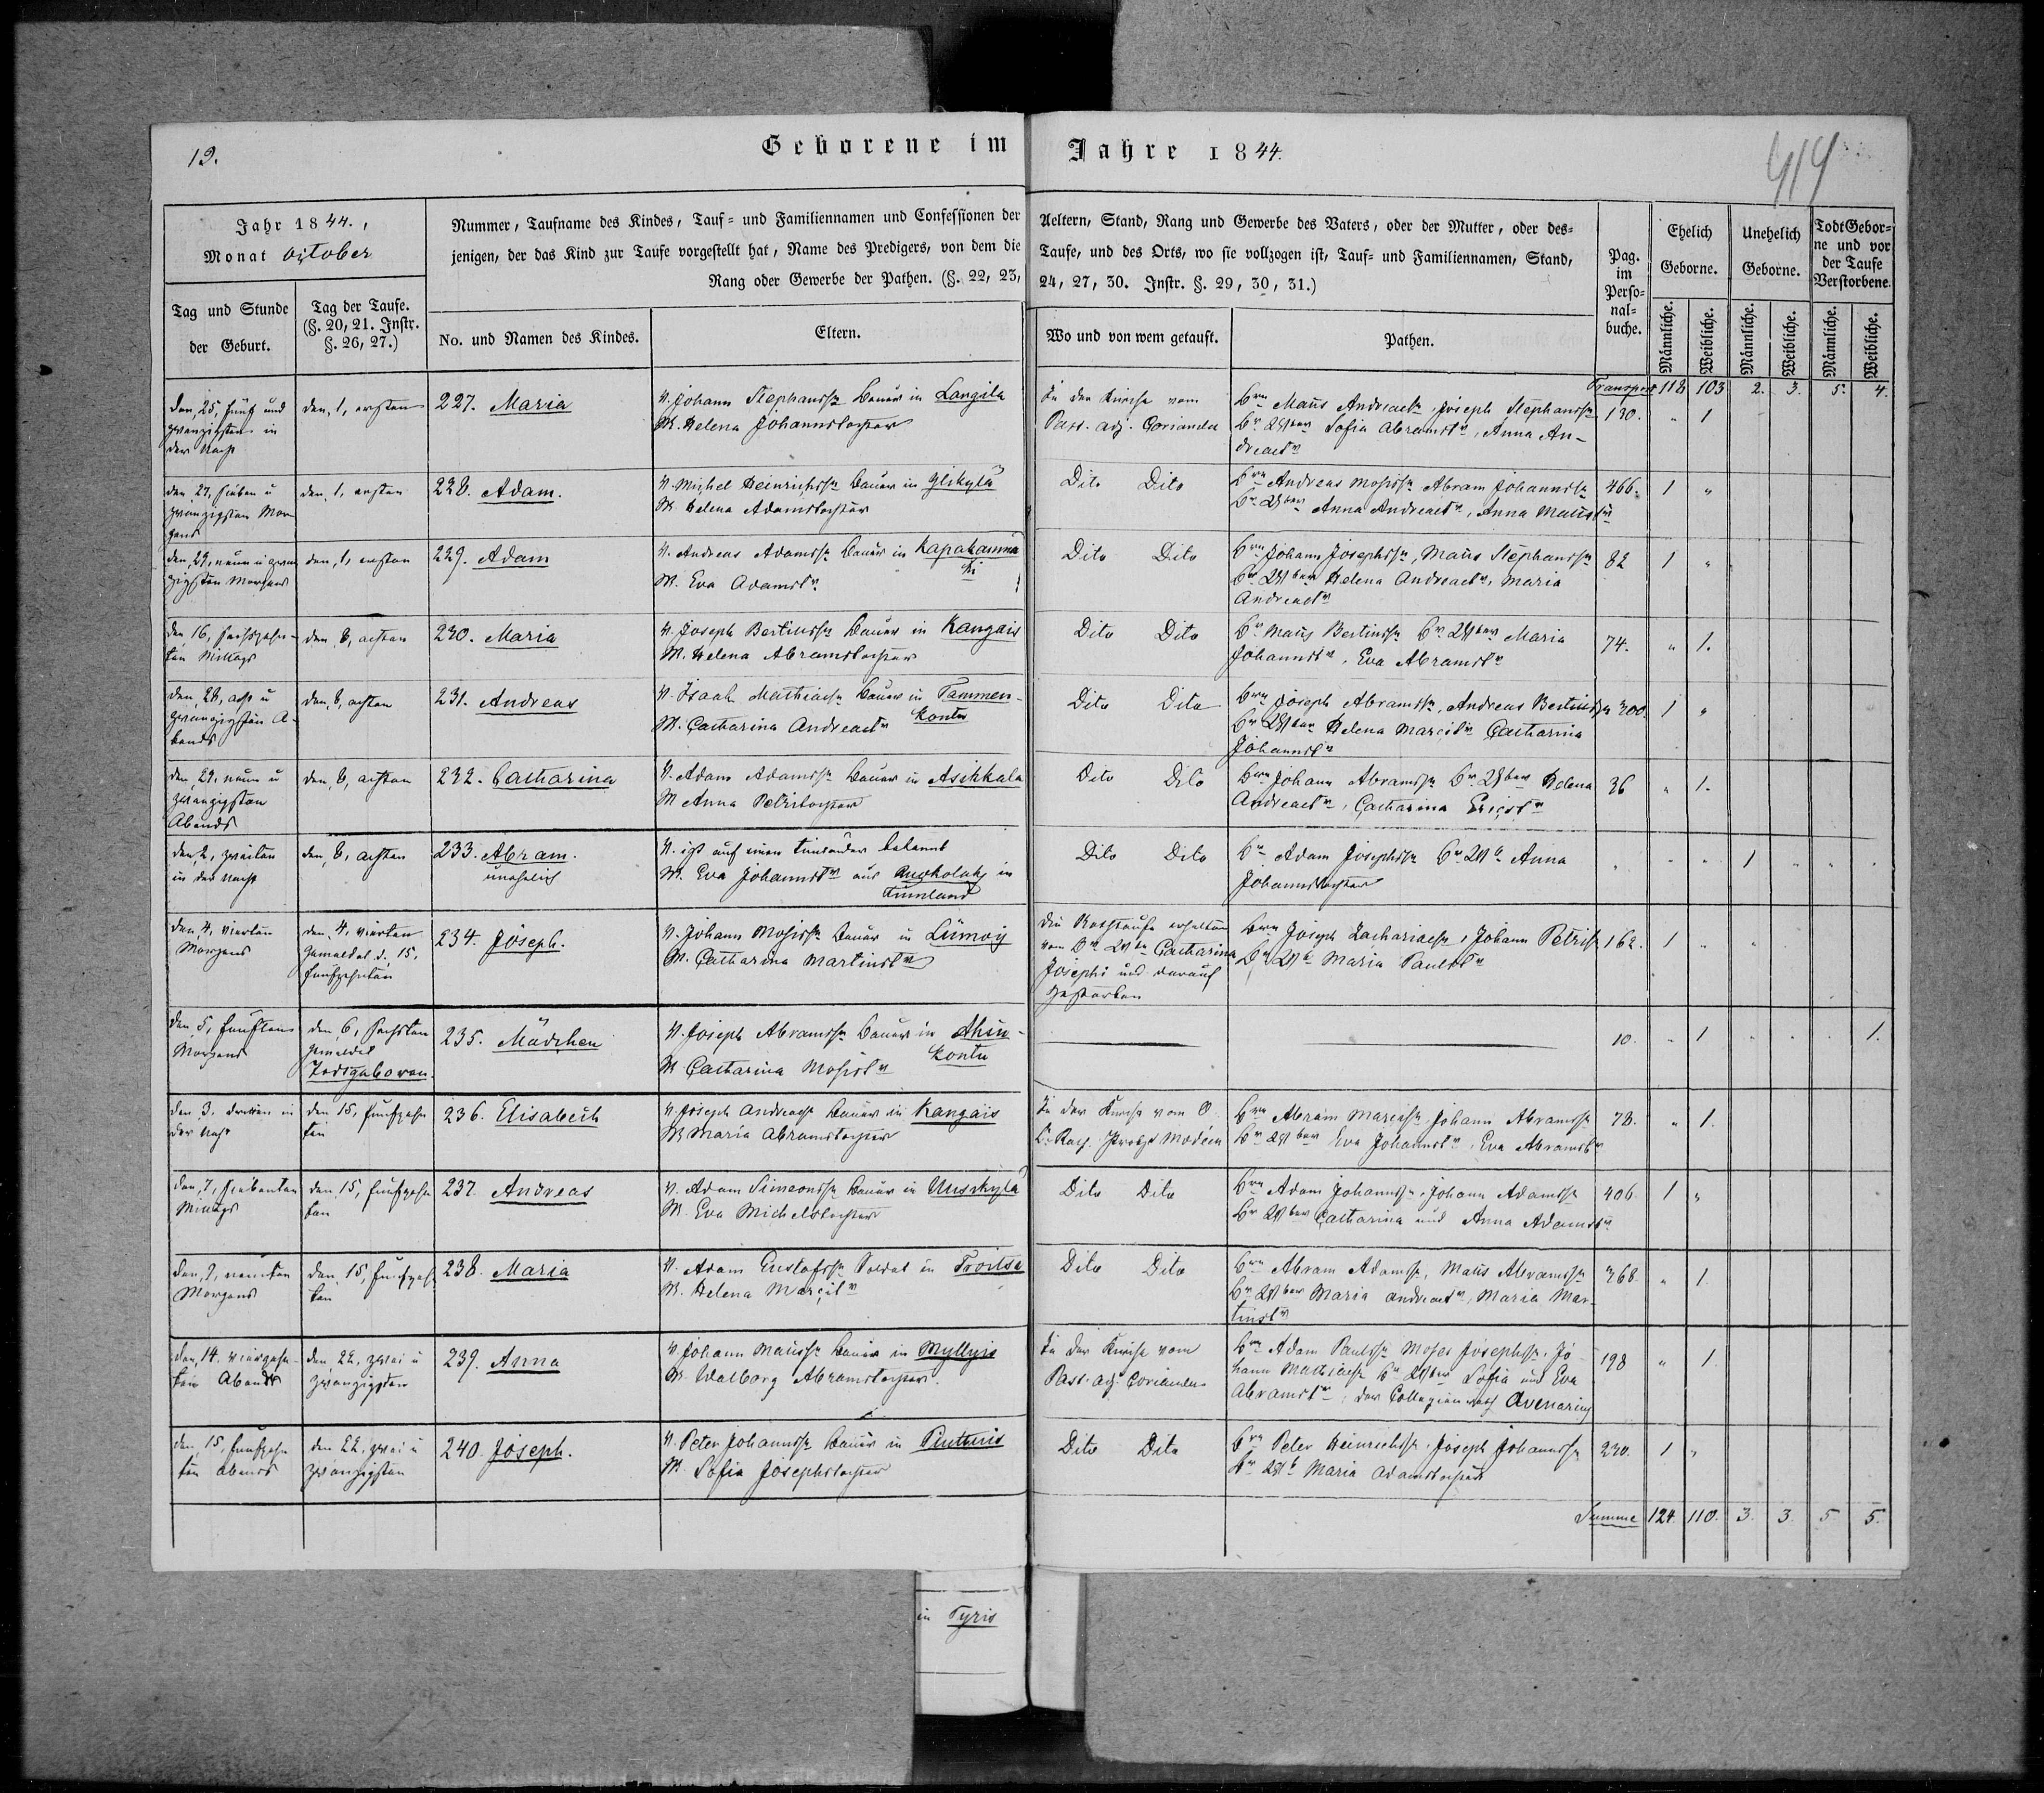 19.
Geborene im Jahre 1844.
414
Jahr 1844.,
Monat October
Nummer, Taufname des Kindes, Tauf= und Familiennamen und Confessionen der
jenigen, der das Kind zur Taufe vorgestellt hat, Name des Predigers, von dem die
Rang oder Gewerbe der Pathen. (§. 22, 23,
Aeltern, Stand, Rang und Gewerbe des Vaters, oder der Mutter, oder des=
Taufe, und des Orts, wo sie vollzogen ist, Tauf= und Familiennamen, Stand,
24, 27, 30. Instr. §. 29, 30, 31.)
Tag und Stunde
der Geburt.
Tag der Taufe.
(§. 20, 21. Instr.
§. 26, 27.)
No. und Namen des Kindes.
Eltern.
Wo und von wem getauft.
Pathen.
Pag.
im
Perso=
nal=
buche.
Ehelich
Geborne.
Unehelich
Geborne.
Todt Gebor=
ne und vor
der Taufe
Verstorbene.
Männliche.
Weibliche.
Männliche.
Weibliche.
Männliche.
Weibliche.
Transport 118 103 2. 3. 5. 4.
den 25, fünf und
zwanzigsten in
der Nacht
den, 1, ersten
227. Maria
V. Johann Stephanss. Bauer in Langila
M. Helena Johannstochter
In der Kirche vom
Past. adj. Coriander
Maūs Andreaess. Joseph Stephanss.
Sofia Abramstr, Anna An-
dreaetr
130. " 1
den 27, sieben u
zwanzigsten Mor
gens
den, 1, ersten
228. Adam.
V. Michel Heinrichss. Bauer in Glikylä
M. Helena Adamstochter
Dito Dito
Andreas Mosiss. Abram Johannss.
Anna Andreaetr, Anna Mauststr
466. 1 "
den, 29, neun u zwan
zigsten Morgens
den, 1, ersten
229. Adam
V. Andreas Adamss. Bauer in Kapakamma
ki
M. Eva Adamstr
Dito Dito
Johann Josephss., Maus Stephanss.
Helena Andreaetr, Maria
Andreaetr
82 1 "
den 16, sechszehn-
ten Mittags
den, 8, achten
230. Maria
V. Joseph Bertinss. Bauer in Kangais
M. Helena Abramstochter
Dito Dito
Maus Bertinss. Maria
Johannstr, Eva Abramstr
74. " 1.
den, 28, acht u
zwanzigsten A-
bends
den, 8, achten
231. Andreas
V. Isaak Mathiaess. Bauer in Tammen-
kontu
M. Catharina Andreaetr
Dito Dito
Joseph Abramss., Andreas Bertinss.
Helena Marcitr Catharina
Johannstr
300. 1 "
den, 29, neun u
zwanzigsten
Abends
den, 8, achten
232. Catharina
V. Adam Adamss. Bauer in Asikkala
M Anna Petristochter
Dito Dito
Johann Abramss. Helena
Andreaetr, Catharina Ericstr
36 " 1.
den, 2, zweiten
in der Nacht
den, 8, achten
233. Abram.
unehelich
M. Eva Johannstr aus in
Finnland
Dito Dito
Adam Josephss. Anna
Johannstochter
" " " 1 " " "
den 4, vierten
Morgens
den, 4, vierten
gemeldet d. 15,
funfzehnten
234. Joseph.
V. Johann Mosiss. Bauer in Lümois
M. Catharina Martinstr
Die Nothtaufe erhalten
von Catharina
Josephi und darauf
gestorben
Joseph Zachariaess., Johann Petriss.
Maria Paulstr
162. 1 " "
den, 5, fünften
Morgens
den, 6, sechsten
gemeldet
Todtgeboren.
235. Mädchen
V. Joseph Abramss. Bauer in Ahin-
kontu
M. Catharina Mosistr
10. " 1 " " . 1.
den 3. dritten in
der Nacht
den 15, funfzehn
ten
236. Elisabeth
V. Joseph Andreaess. Bauer in Kangais
M. Maria Abramstochter
In der Kirche vom
Probst Modeen
Abram Marciss. Johann Abramss.
Eva Johannstr, Eva Abramstr
78. " 1.
den, 7, siebenten
Mittags
den, 15, funfzehn
ten
237. Andreas
V. Adam Simeonss. Bauer in Uusikylä
M. Eva Michelstochter
Dito Dito
Adam Johannss., Johann Adamss.
Catharina und Anna Adamstr
406. 1 "
den, 9, neunten
Morgens
den, 15, funfzehn
ten
238. Maria
V. Adam Gustafss. Soldat in Troitsa
M. Helena Marcitr
Dito Dito
Abram Adamss., Maus Abramss.
Maria Andreaetr, Maria Mar-
tinstr
368. " 1.
den, 14. vierzehn-
ten Abends
den, 22, zwei u
zwanzigsten
239. Anna
V. Johann Mauss. Bauer in Myllyis
M. Walborg Abramstochter.
In der Kirche vom
Past. adj. Coriander
Adam Paulss. Moses Josephss. Jo-
hann Mathiaess. Sofia und Eva
Abramstr, der Collegienrath Avenarius
198 " 1.
den 15, funfzehn
ten abends
den 22, zwei u
zwanzigsten
240. Joseph.
V. Peter Johannss. Bauer in Pinturis
M. Sofia Josephstochter
Dito Dito
Peter Heinrichss. Joseph Johannss.
Maria Adamstochter
230. 1 "
Summe 124. 110. 3. 3. 5 5.
in Tyris